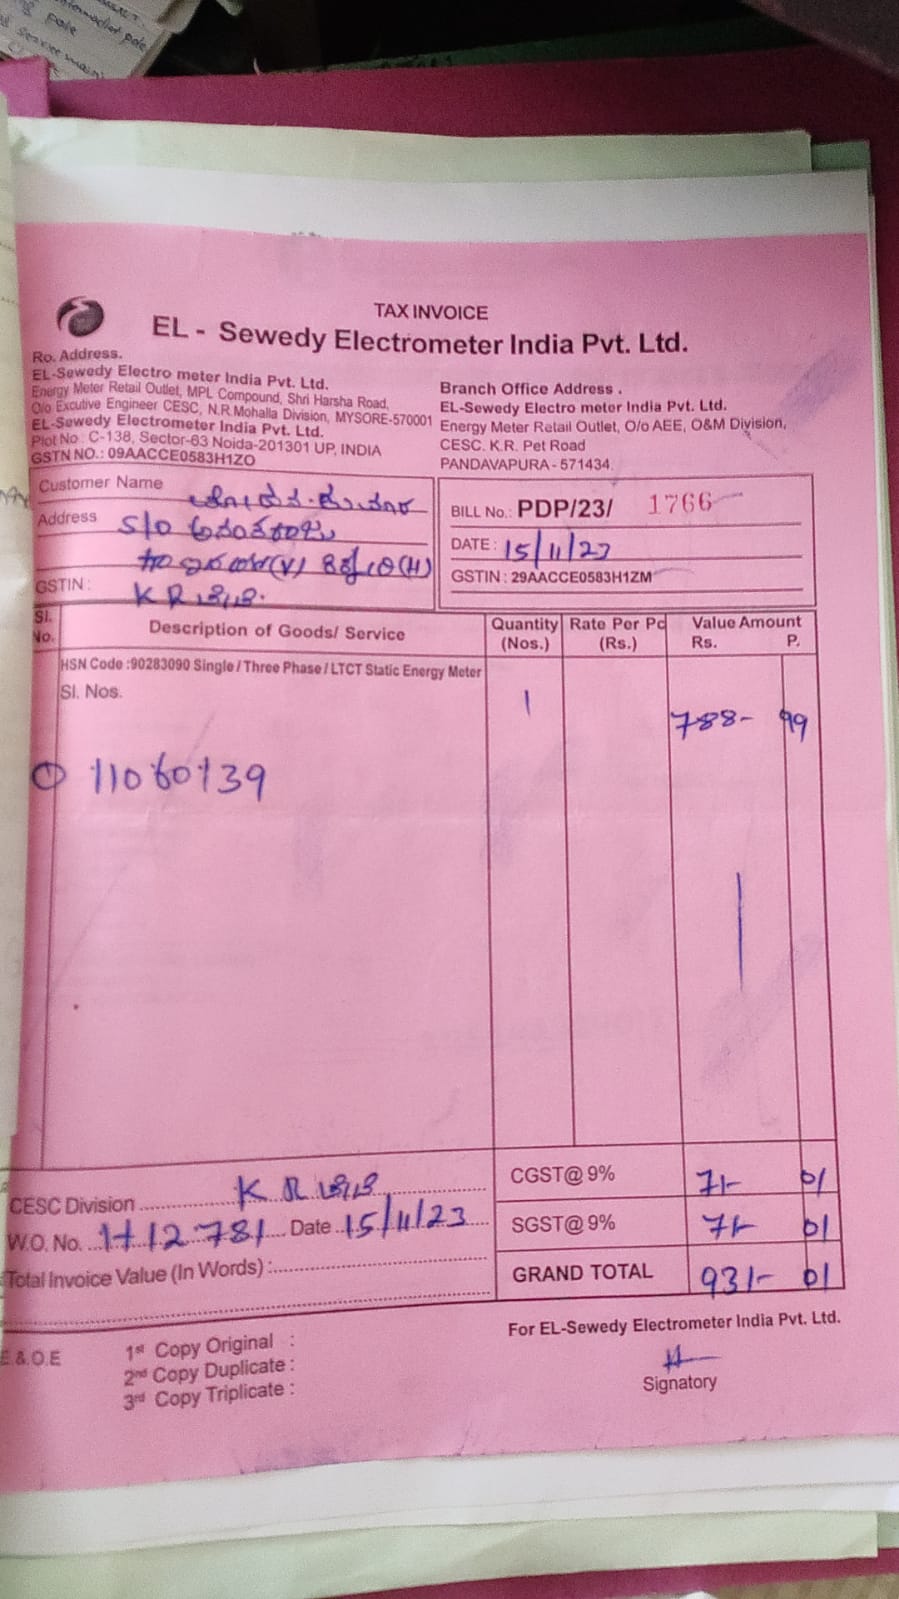 TAX INVOICE
EL - Sewedy Electrometer India Pvt. Ltd.
Ro. Address.
EL-Sewedy Electro meter India Pvt. Ltd.
Energy Meter Retail Outlet, MPL Compound, Shri Harsha Road,
O/o Excutive Engineer CESC, N.R.Mohalla Division, MYSORE-570001
EL-Sewedy Electrometer India Pvt. Ltd.
Plot No : C-138, Sector-63 Noida-201301 UP, INDIA
GSTN NO.: 09AACCE0583H1ZO
Branch Office Address .
EL-Sewedy Electro meter India Pvt. Ltd.
Energy Meter Retail Outlet, O/o AEE, O&M Division,
CESC. K.R. Pet Road
PANDAVAPURA - 571434.
Customer Name
Address S/O
(V) (H)
GSTIN : K R ಪೇಟೆ.
BILL No.: PDP/23/ 1766
DATE : 15/11/23
GSTIN : 29AACCE0583H1ZM
Sl. No. Description of Goods/ Service Quantity (Nos.) Rate Per Pc (Rs.) Value Amount Rs. P.
HSN Code :90283090 Single / Three Phase / LTCT Static Energy Meter
Sl. Nos. 1 788- 99
① 11060139
CGST@ 9% 71- 01
CESC Division K R ಪೇಟೆ
SGST@ 9% 71- 01
W.O. No. Date 15/11/23
Total Invoice Value (In Words) :
GRAND TOTAL 931- 01
For EL-Sewedy Electrometer India Pvt. Ltd.
E.&.O.E
1st Copy Original :
2nd Copy Duplicate :
3rd Copy Triplicate :
Signatory